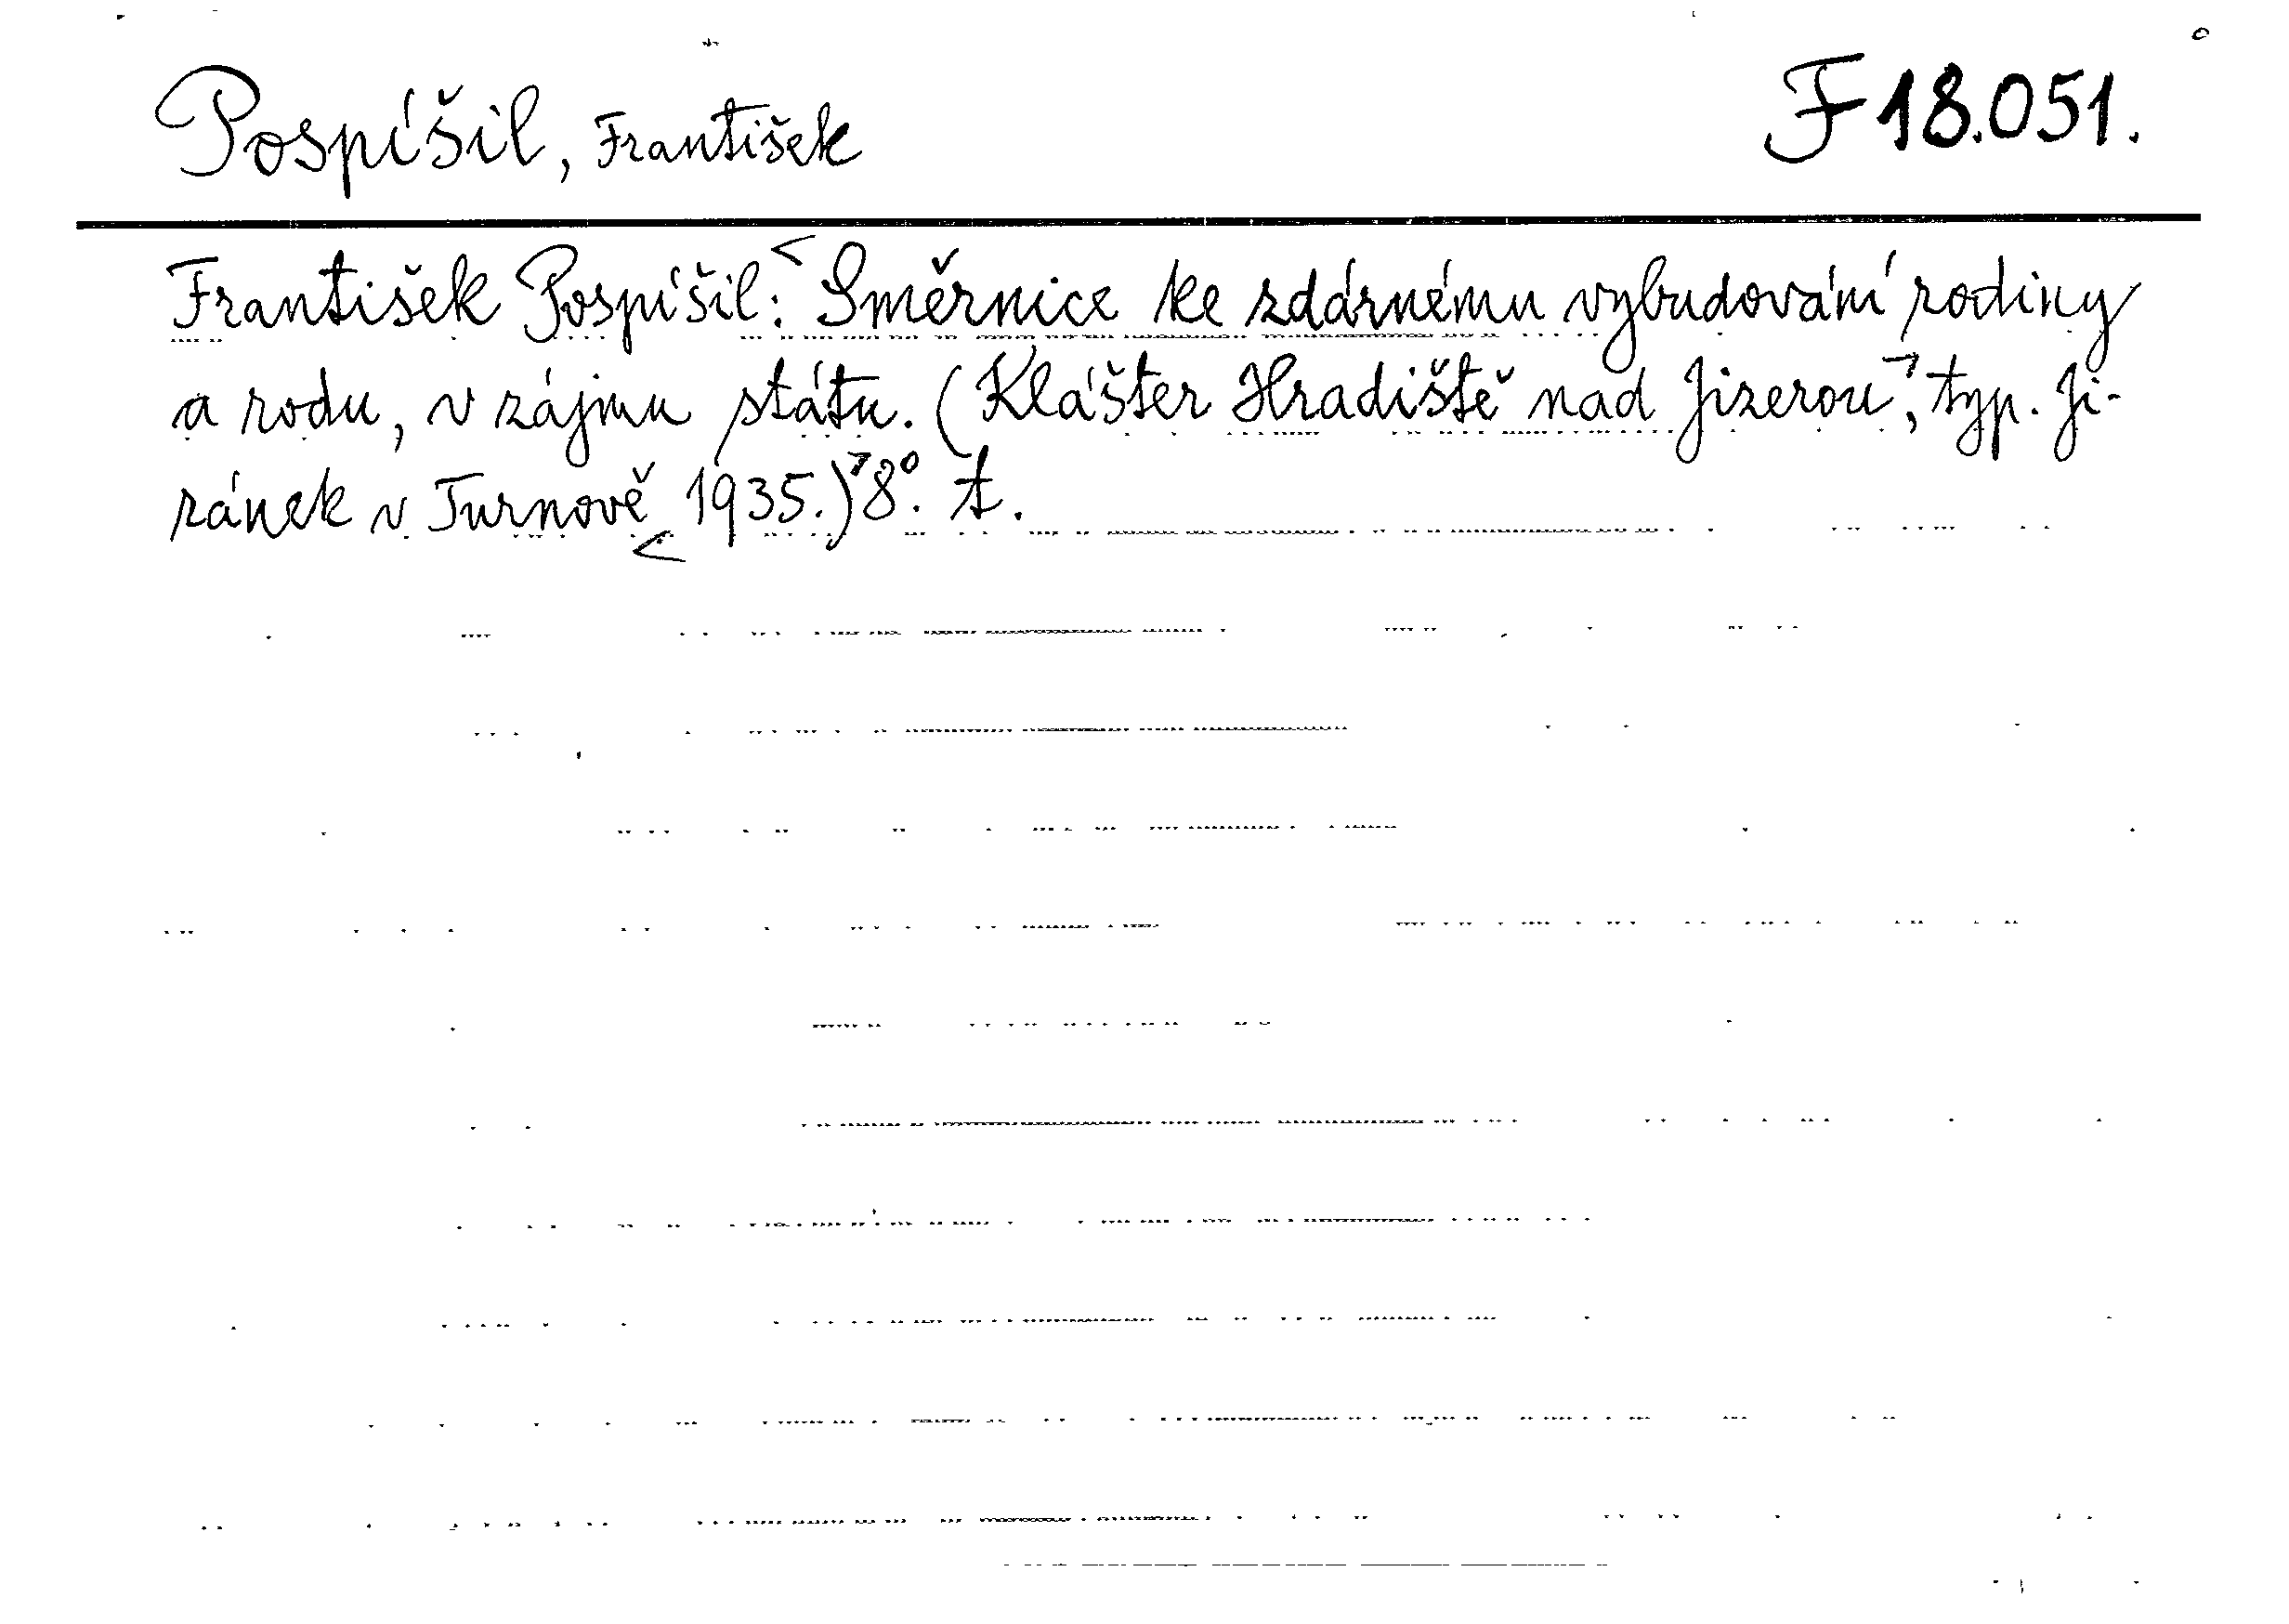 Pospíšil, František F 18.051.
František Pospíšil: Směrnice ke zdárnému vybudování rodiny
a rodu, v zájmu státu. (Klášter Hradiště nad Jizerou, typ. Ji-
ránek v Turnově 1935.) 8°. A.